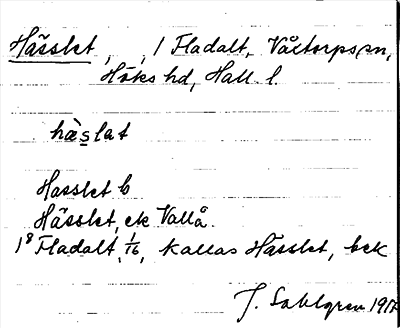 Hässlet, , 1 Fladalt, Våxtorps sn,
Höks hd, Hall. l.
hässlat
Hasslet b
Hässlet, ek Vallå.
1⁸ Fladalt, 1/16, kallas Hässlet, bek
J. Sahlgren 1917